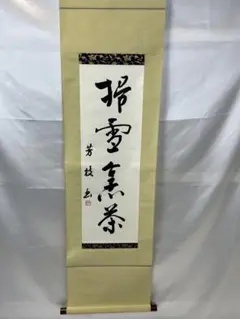 掃雪烹茶
芳枝書